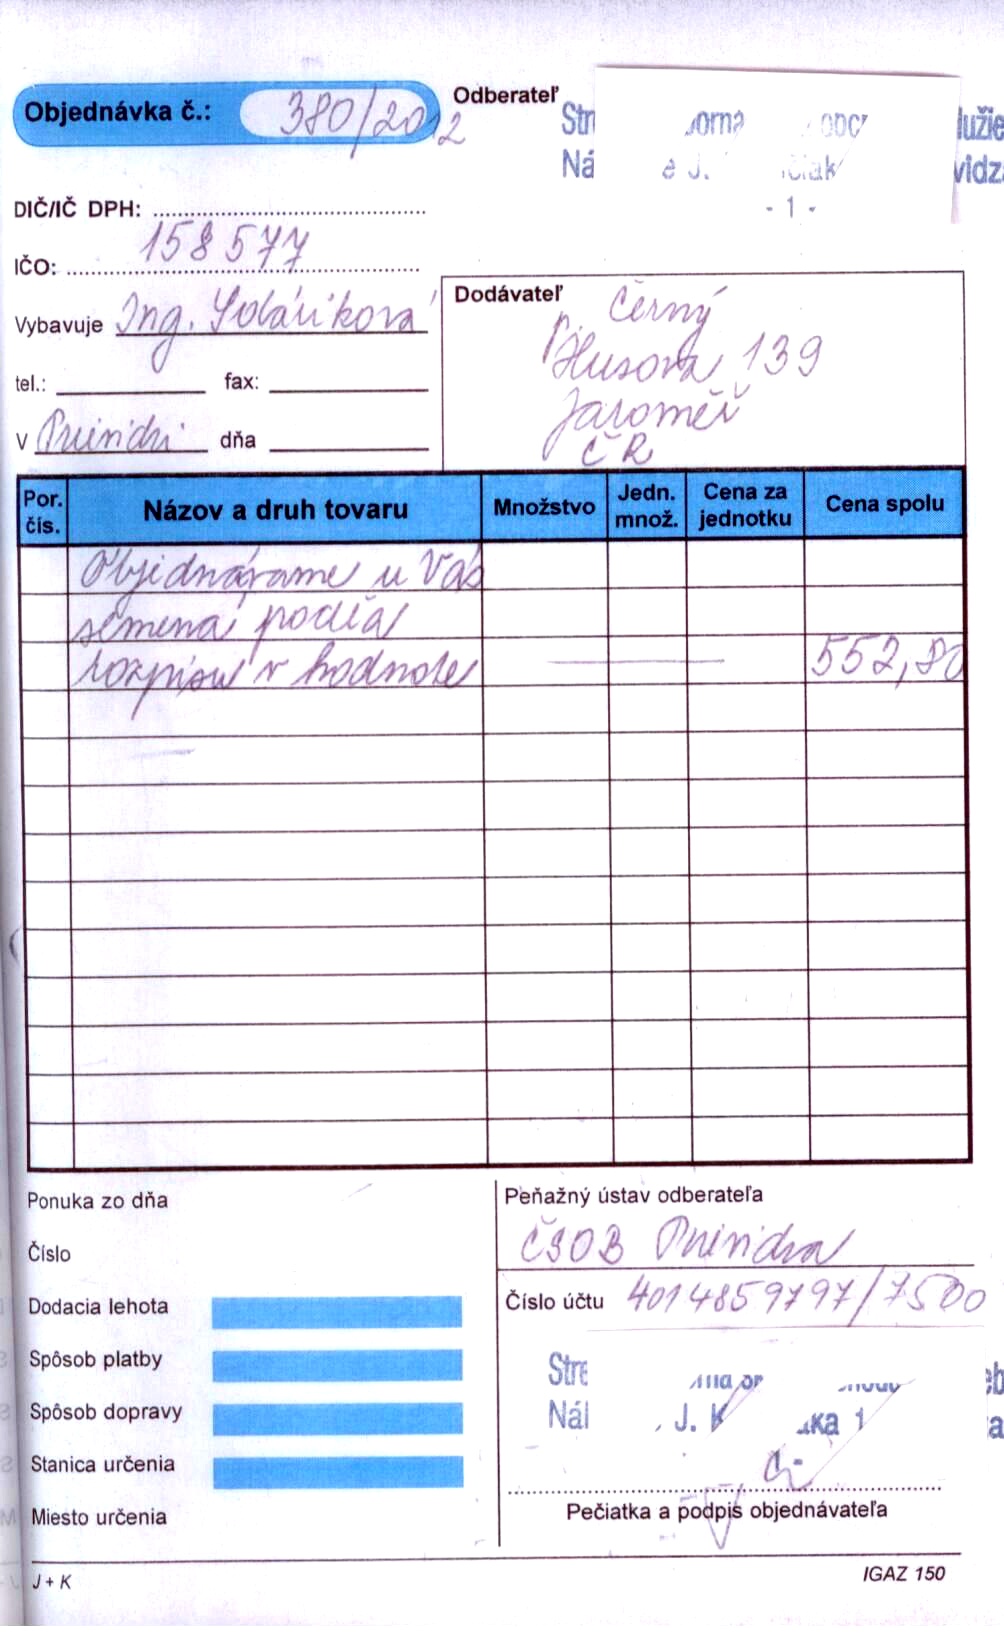 Objednávka č.: 380/2012
Odberateľ
- 1 -
DIČ/IČ DPH:
IČO: 158577
Vybavuje Ing.
tel.: fax:
V Prievidzi dňa
Dodávateľ
Černý
Husova 139
Jaroměř
ČR
Por. čís.
Názov a druh tovaru
Množstvo
Jedn. množ.
Cena za jednotku
Cena spolu
Objednávame u Vás
semená podľa
rozpisu v hodnote 552,80
Ponuka zo dňa
Číslo
Dodacia lehota
Spôsob platby
Spôsob dopravy
Stanica určenia
Miesto určenia
Peňažný ústav odberateľa
ČSOB Prievidza
Číslo účtu 4014859797/7500
Pečiatka a podpis objednávateľa
J + K
IGAZ 150